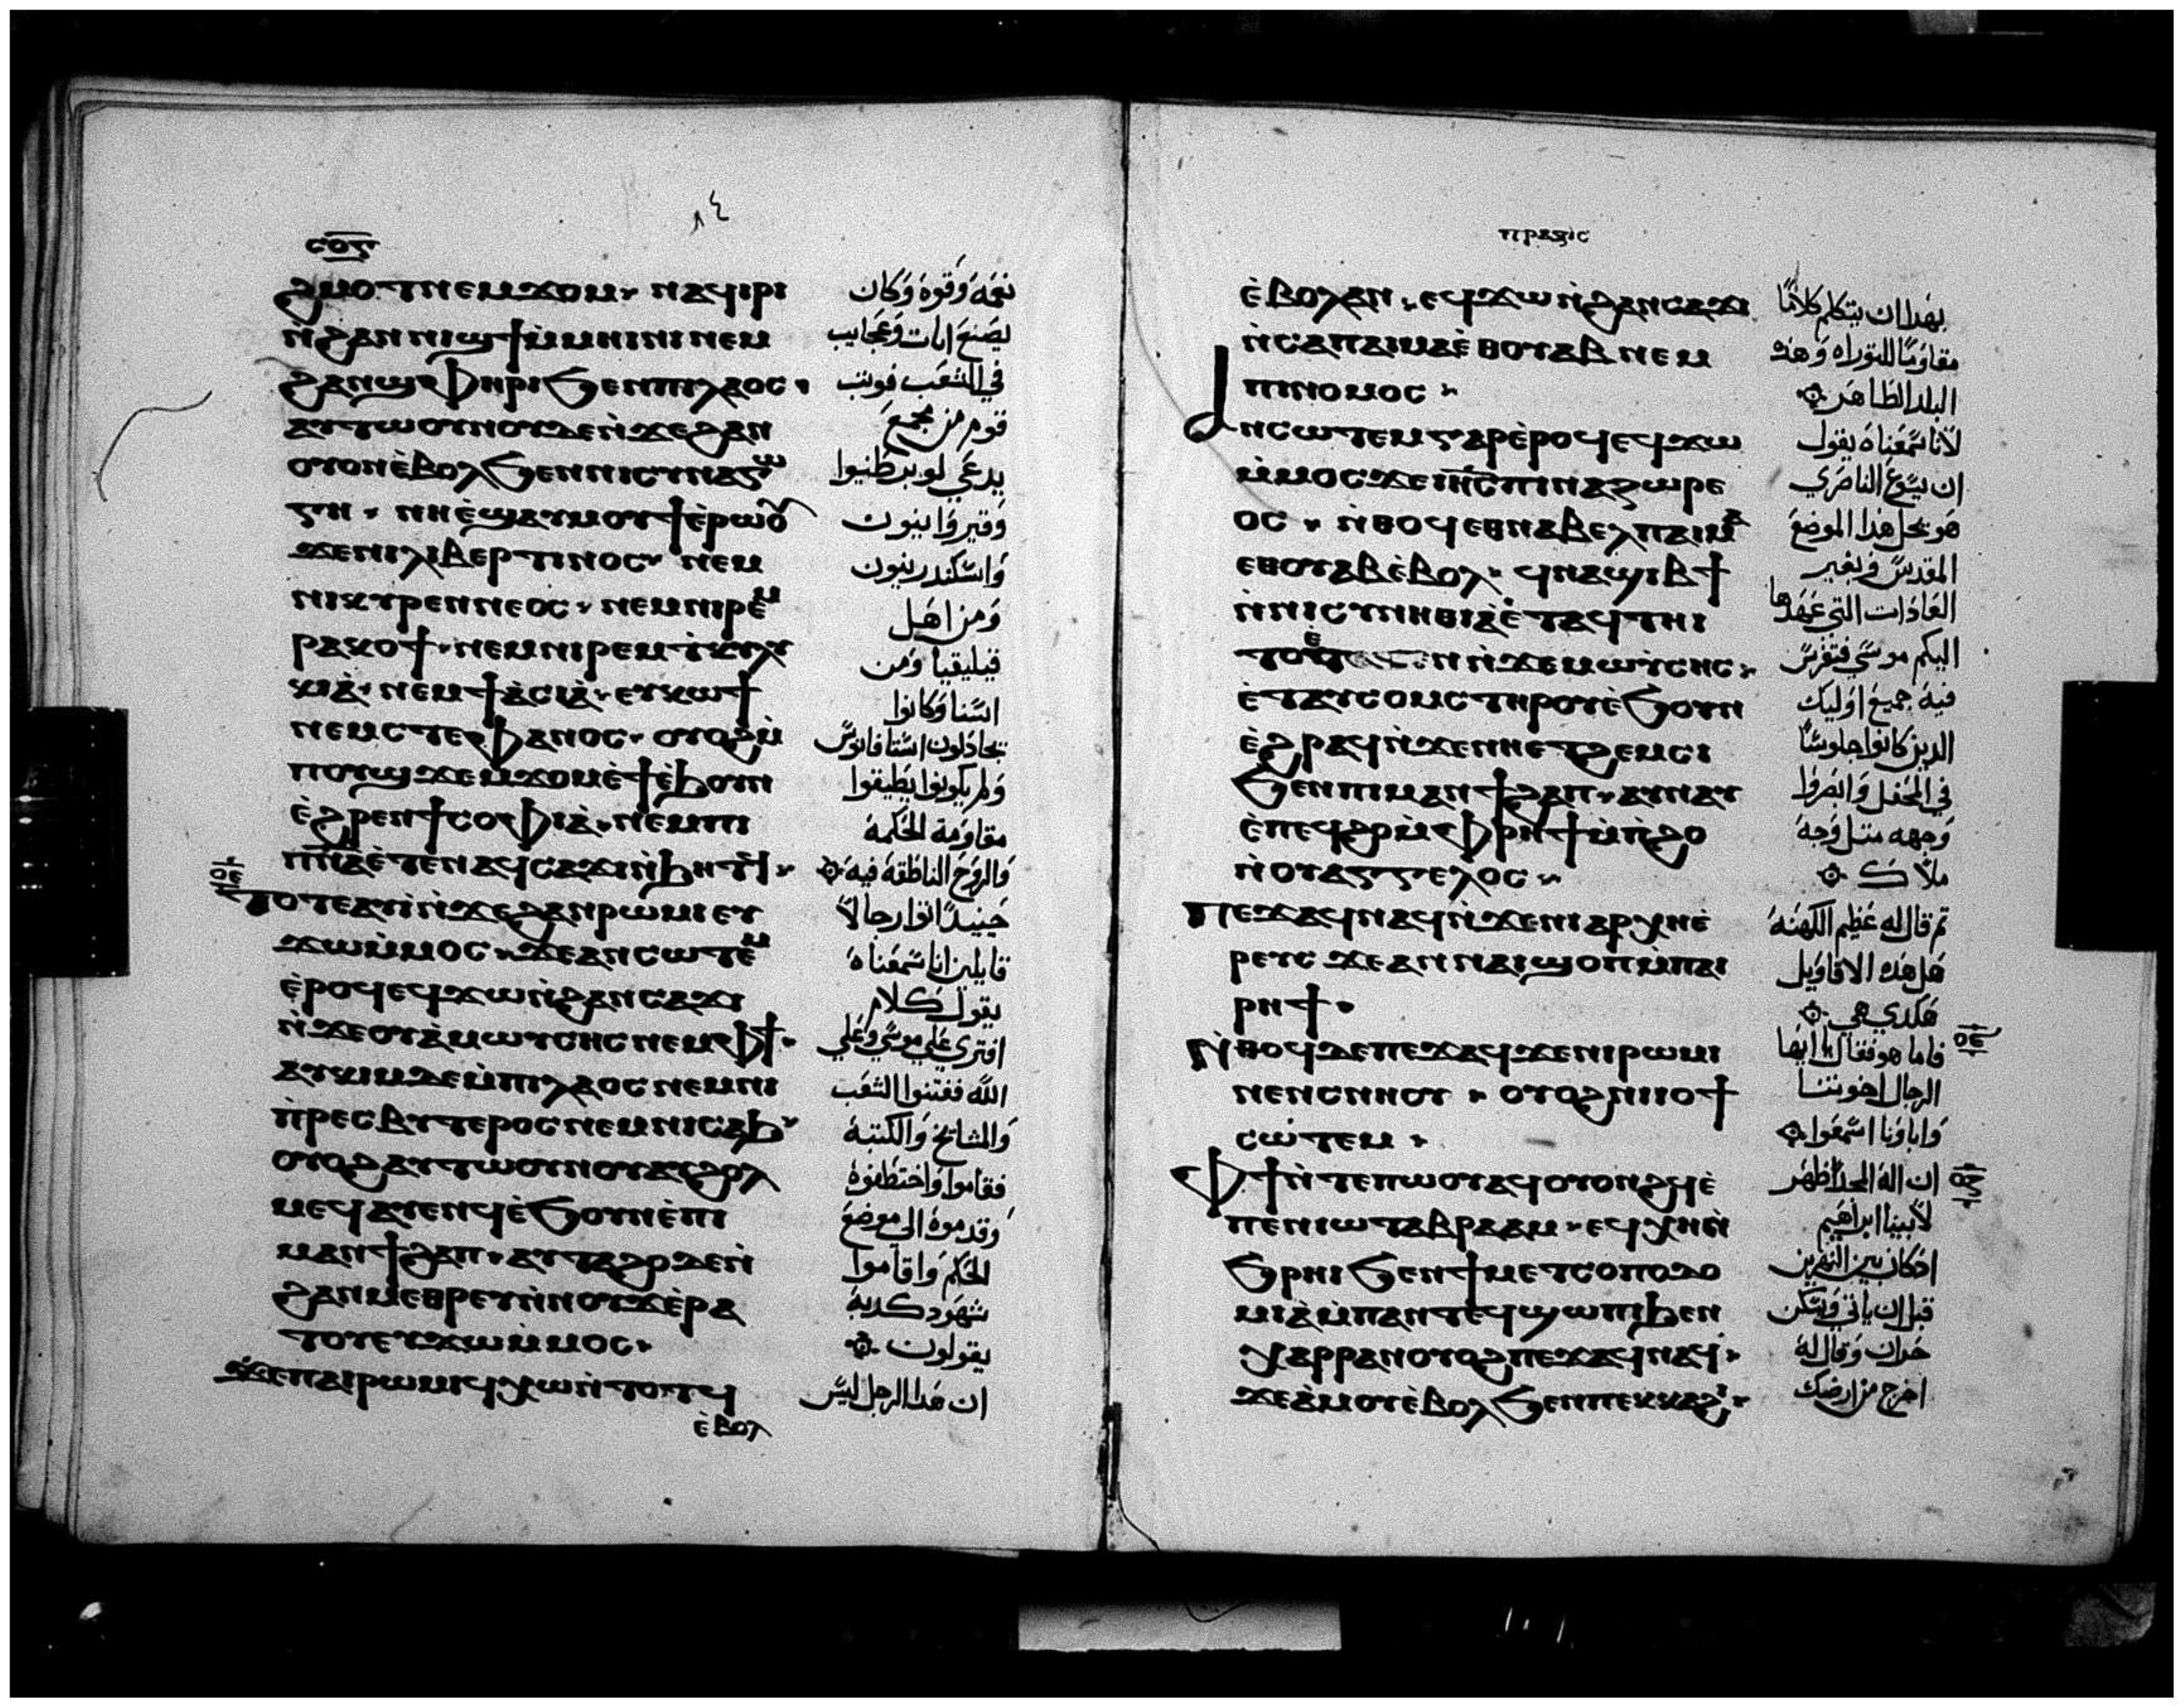 ٨٤
ⲥⲟⲋ
ϩⲙⲟⲧ ⲛⲉⲙ ϫⲟⲙ· ⲛⲁϥⲓⲣⲓ
ⲛ̀ϩⲁⲛⲛⲓϣϯ ⲙ̀ⲙⲏⲓⲛⲓ ⲛⲉⲙ
ϩⲁⲛϣⲫⲏⲣⲓ ϧⲉⲛ ⲡⲓⲗⲁⲟⲥ·
ⲁⲩⲧⲱⲟⲩⲛⲟⲩ ⲇⲉ ⲛ̀ϫⲉ ϩⲁⲛ
ⲟⲩⲟⲛ ⲉ̀ⲃⲟⲗ ϧⲉⲛ ⲛⲓⲥⲩⲛⲁⲅⲱ
ⲅⲏ· ⲛⲏ ⲉ̀ϣⲁⲩⲙⲟⲩϯ ⲉ̀ⲣⲱⲟⲩ
ϫⲉ ⲛⲓⲗⲓⲃⲉⲣⲧⲓⲛⲟⲥ· ⲛⲉⲙ
ⲛⲓⲕⲩⲣⲉⲛⲛⲉⲟⲥ· ⲛⲉⲙ ⲛⲓⲣⲉⲙ
ⲣⲁⲕⲟϯ· ⲛⲉⲙ ⲛⲓⲣⲉⲙ ϯⲕⲩⲗ
ⲕⲓⲁ̀· ⲛⲉⲙ ϯⲁ̀ⲥⲓⲁ̀· ⲉⲩⲕⲱϯ
ⲛⲉⲙ ⲥⲧⲉⲫⲁⲛⲟⲥ· ⲟⲩⲟϩ ⲙ̀
ⲡⲟⲩϣϫⲉⲙϫⲟⲙ ⲉ̀ϯ ⲉ̀ϧⲟⲩⲛ
ⲉ̀ϩⲣⲉⲛ ϯⲥⲟⲫⲓⲁ̀· ⲛⲉⲙ ⲡⲓ
ⲡⲛ̅ⲁ̅ ⲉ̀ⲧⲉⲛⲁϥⲥⲁϫⲓ ⲛ̀ϧⲏⲧϥ·
ⲟⲉ
ⲧⲟⲧⲉ ⲁⲩⲓ̀ ⲛ̀ϫⲉ ϩⲁⲛⲣⲱⲙⲓ ⲉⲩ
ϫⲱ ⲙ̀ⲙⲟⲥ· ϫⲉ ⲁⲛⲥⲱⲧⲉⲙ
ⲉ̀ⲣⲟϥ ⲉϥϫⲱ ⲛ̀ϩⲁⲛⲥⲁϫⲓ
ⲛ̀ϫⲉⲟⲩⲁ̀ ⲙⲱⲩⲥⲏⲥ ⲛⲉⲙ ⲫϯ·
ⲁⲩⲕⲓⲙ ⲇⲉ ⲙ̀ⲡⲓⲗⲁⲟⲥ ⲛⲉⲙ ⲛⲓ
ⲡ̀ⲣⲉⲥⲃⲩⲧⲉⲣⲟⲥ ⲛⲉⲙ ⲛⲓⲥⲁϧ·
ⲟⲩⲟϩ ⲁⲩⲧⲱⲟⲩⲛⲟⲩ ⲁⲩϩⲟⲗ
ⲙⲉϥ ⲁⲩⲉⲛϥ ⲉ̀ϧⲟⲩⲛ ⲉ̀ⲡⲓ
ⲙⲁⲛϯϩⲁⲡ· ⲁⲩⲧⲁϩⲟ ⲇⲉ ⲛ̀
ϩⲁⲛⲙⲉⲑⲣⲉⲩ ⲛ̀ⲛⲟⲩϫ ⲉ̀ⲣⲁ
ⲧⲟⲩ ⲉⲩϫⲱ ⲙ̀ⲙⲟⲥ·
ϫⲉ ⲡⲁⲓⲣⲱⲙⲓ ϥⲭⲱ ⲛ̀ⲧⲟⲧϥ
ⲉ̀ⲃⲟⲗ
نعمة وقوة وكان
يصنع ايات وعجايب
في الشعب فوثب
قوم من مجمع
يدعي لوبرطنيوا
وقيروانيون
واسكندرنيون
ومن اهل
قيليقيا ومن
اسيا وكانوا
يجادلون اسطافانوس
ولم يكونوا يطيقوا
مقاومة الحكمة
والروح الناطقة فيه
حينيذ اتوا رجالا
قايلين انا سمعناه
يقول كلام
افتري علي موسي وعلي
الله ففتنوا الشعب
والمشايخ والكتبة
فقاموا واختطفوه
وقدموه الي موضع
الحكم واقاموا
شهود كدبة
يقولون
ان هدا الرجل ليس
ⲡⲣⲁⲝⲓⲥ
ⲉ̀ⲃⲟⲗ ⲁⲛ· ⲉϥϫⲱ ⲛ̀ϩⲁⲛⲥⲁϫⲓ
ⲛ̀ⲥⲁ ⲡⲁⲓⲙⲁ ⲉ̀ⲑⲟⲩⲁⲃ ⲛⲉⲙ
ⲡⲓⲛⲟⲙⲟⲥ·
ⲁⲛⲥⲱⲧⲉⲙ ⲅⲁⲣ ⲉ̀ⲣⲟϥ ⲉϥϫⲱ
ⲙ̀ⲙⲟⲥ ϫⲉ ⲓⲏ̅ⲥ̅ ⲡⲓⲛⲁⲍⲱⲣⲉ
ⲟⲥ· ⲛ̀ⲑⲟϥ ⲉⲑⲛⲁⲃⲉⲗ ⲡⲁⲓⲙⲁ
ⲉⲑⲟⲩⲁⲃ ⲉ̀ⲃⲟⲗ· ϥⲛⲁϣⲓⲃϯ
ⲛ̀ⲛⲓⲥⲩⲛⲏⲑⲓⲁ̀ ⲉ̀ⲧⲁϥⲧⲏⲓ
ⲛ̀ϫⲉ ⲙⲱⲩⲥⲏⲥ·
ⲉ̀ⲧⲁⲩⲥⲟⲙⲥ ⲧⲏⲣⲟⲩ ⲉ̀ϧⲟⲩⲛ
ⲉ̀ϩⲣⲁϥ ⲛ̀ϫⲉ ⲛⲏⲉⲧϩⲉⲙⲥⲓ
ϧⲉⲛ ⲡⲓⲙⲁⲛϯϩⲁⲡ· ⲁⲩⲛⲁⲩ
ⲉ̀ⲡⲉϥϩⲟ ⲙ̀ⲫⲣⲏϯ ⲙ̀ⲡ̀ϩⲟ
ⲛ̀ⲟⲩⲁⲅⲅⲉⲗⲟⲥ·
ⲡⲉϫⲁϥ ⲛⲁϥ ⲛ̀ϫⲉ ⲡⲓⲁⲣⲭⲏⲉ̀
ⲣⲉⲩⲥ ϫⲉ ⲁⲛ ⲛⲁⲓ ϣⲟⲡ ⲙ̀ⲡⲁⲓ
ⲣⲏϯ·
ⲛ̀ⲑⲟϥ ⲇⲉ ⲡⲉϫⲁϥ ϫⲉ ⲛⲓⲣⲱⲙⲓ
ⲛⲉⲛⲥⲛⲏⲟⲩ· ⲟⲩⲟϩ ⲛⲓⲓⲟϯ
ⲥⲱⲧⲉⲙ·
ⲫϯ ⲛ̀ⲧⲉ ⲡⲱⲟⲩ ⲁϥⲟⲩⲟⲛϩϥ ⲉ̀
ⲡⲉⲛⲓⲱⲧ ⲁⲃⲣⲁⲁⲙ· ⲉϥⲭⲏ ⲛ̀
ϧⲣⲏⲓ ϧⲉⲛ ϯⲙⲉⲧⲥⲟⲡⲟⲇⲟ
ⲙⲓⲁ̀ ⲙ̀ⲡⲁⲛⲧⲉϥϣⲱⲡⲓ ϧⲉⲛ
ⲭⲁⲣⲣⲁⲛ ⲟⲩⲟϩ ⲡⲉϫⲁϥ ⲛⲁϥ·
ϫⲉ ⲁ̀ⲙⲟⲩ ⲉ̀ⲃⲟⲗ ϧⲉⲛ ⲡⲉⲕⲕⲁϩⲓ·
بهدا ان يتكلم كلاما
مقاوما للتوراه وهده
البلد الطاهر
لانا سمعناه يقول
ان يسوع الناصري
هو يحل هدا الموضع
المقدس ويغير
العادات التي عهدها
اليكم موسي فتفرس
فيه جميع اوليك
الدين كانوا جلوسا
في المحفل وابصروا
وجهه متل وجه
ملاك
تم قال له عظيم الكهنة
هل هده الاقاويل
هكدي هي
ⲟⲉ
فاما هو فقال يا ايها
الرجال اخوتنا
واباونا اسمعوا
ان اله المجد ظهر
لابينا ابراهيم
ادكان بين النهرين
قبل ان ياتي ويسكن
حران وقال له
اخرج من ارضك